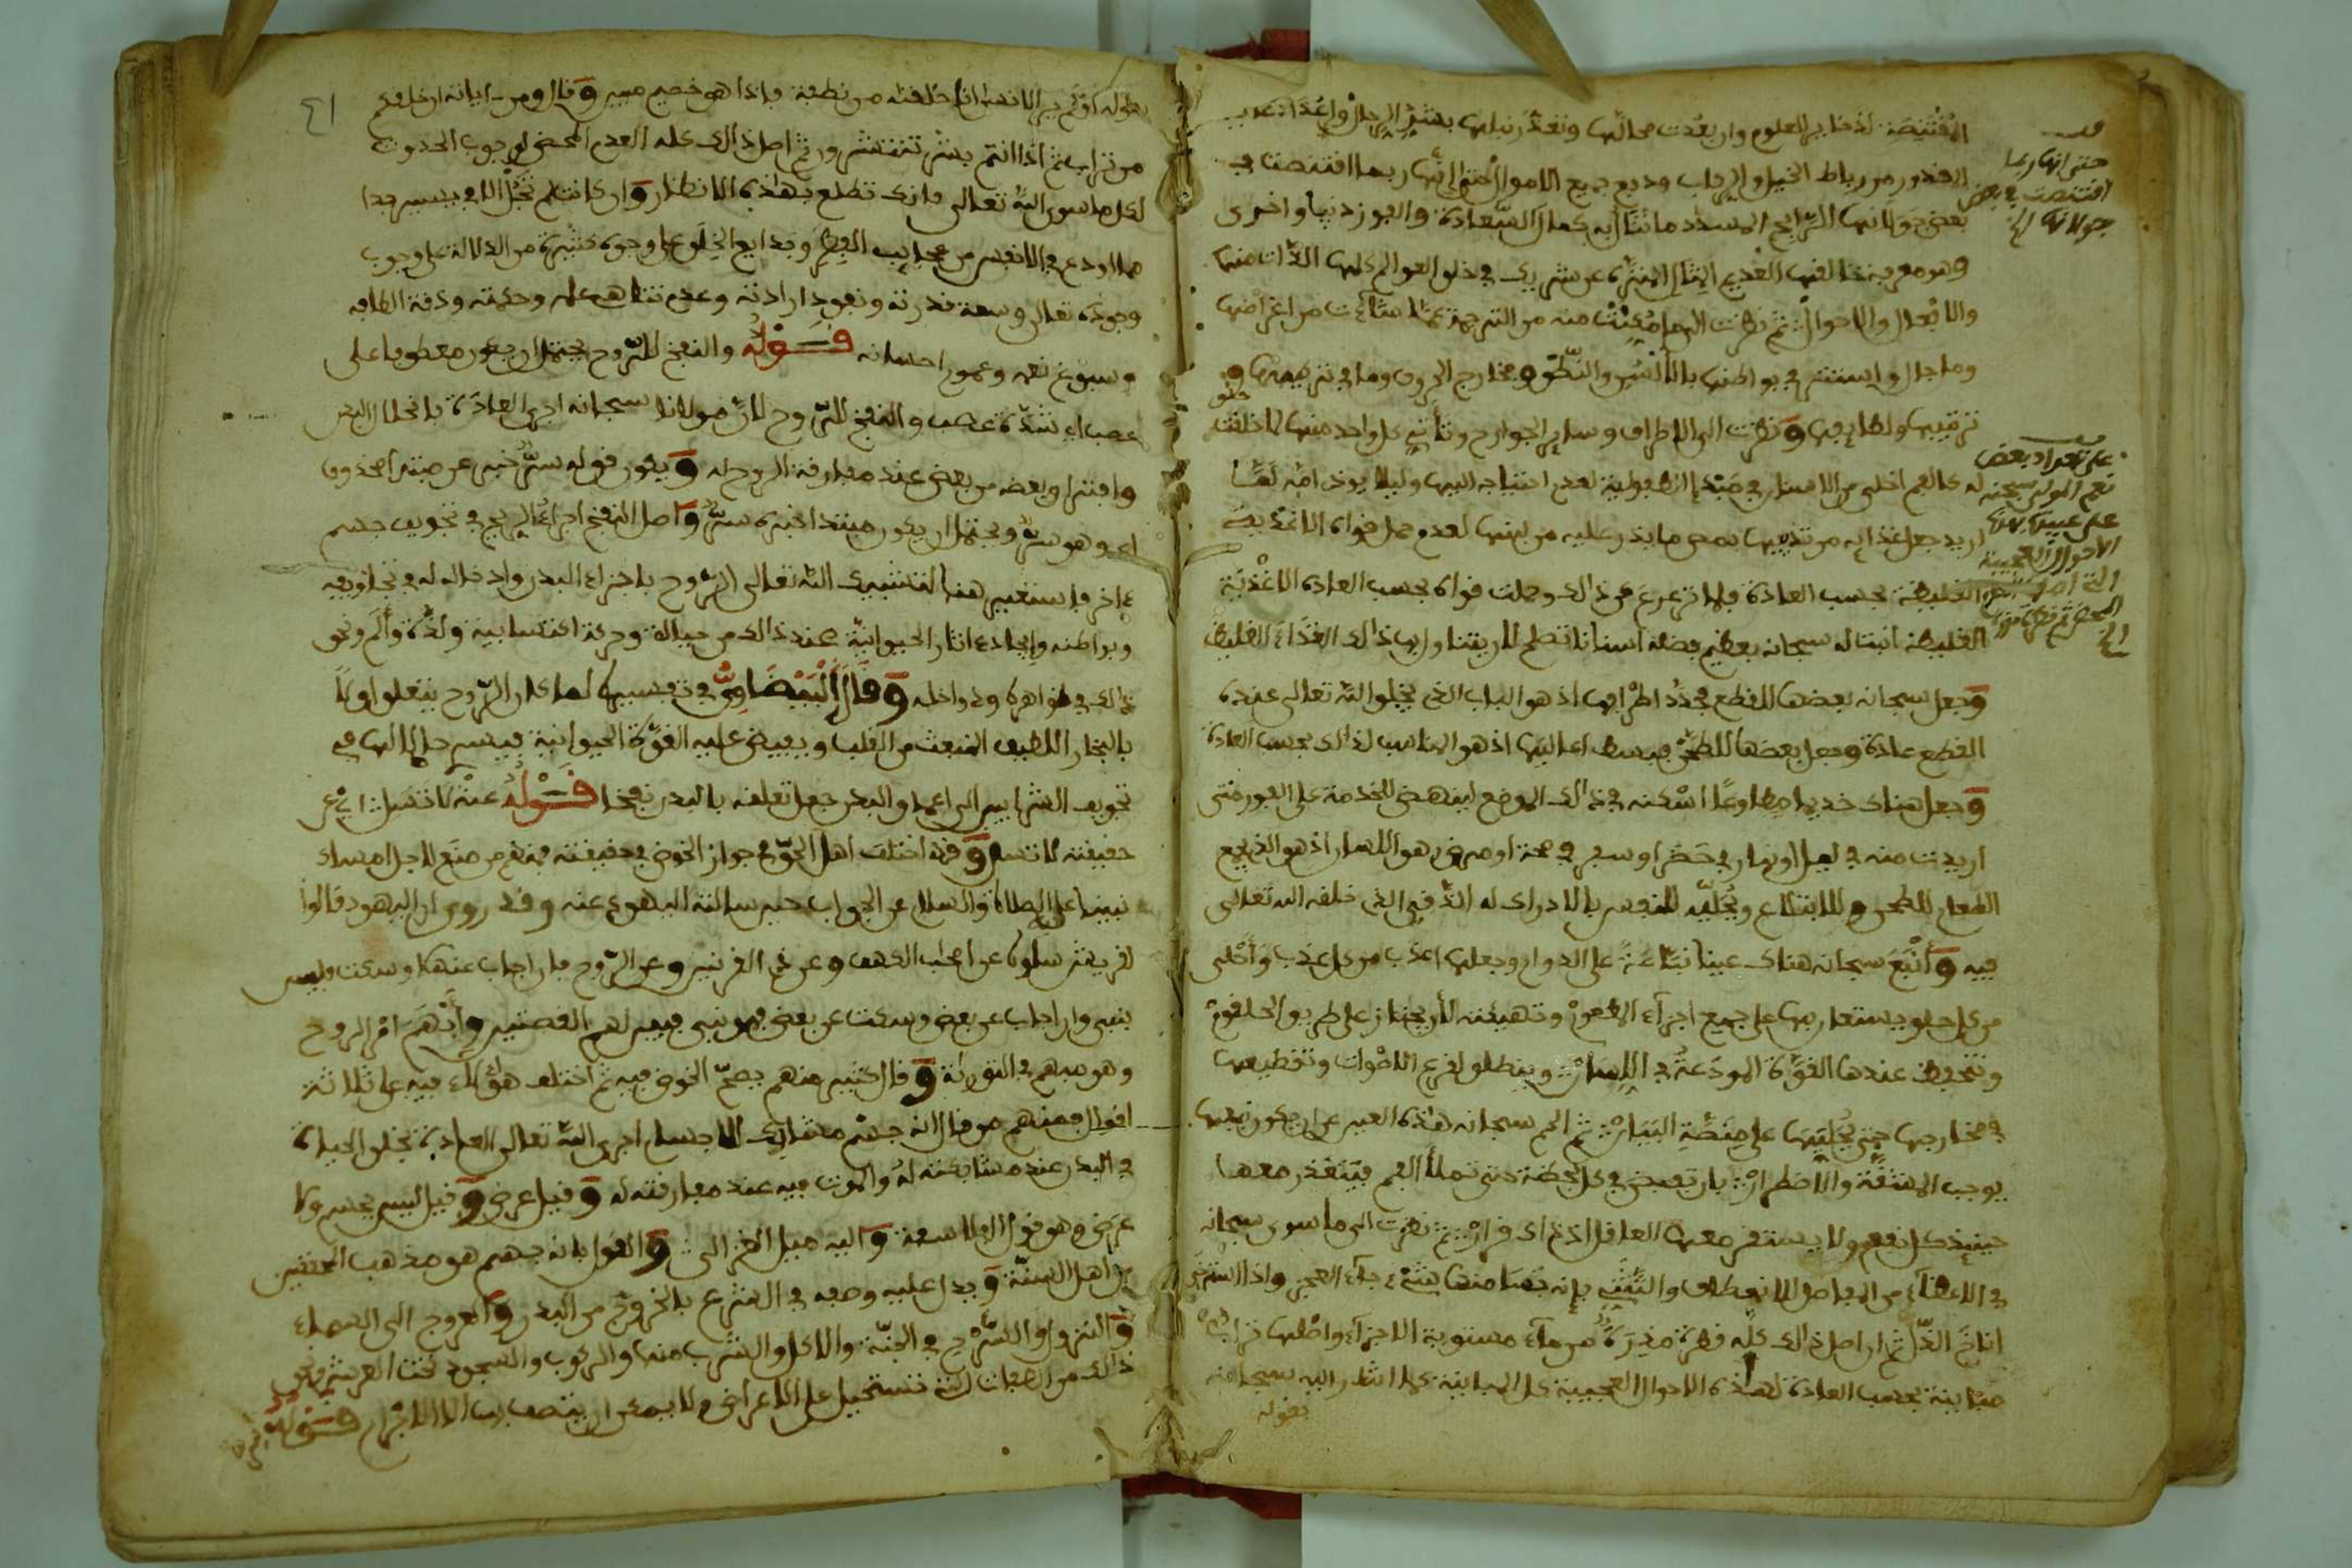 المقتنصة لذخاير العلوم وان بعدت محالها وتعذر نيلها بشد الرحال واعداد عدد
المقدور من رباط الخيل والركاب ودفع جميع الاموال حتى انها ربما اقتنصت في
بعض جولانها الرابح المسدد ما تنال به كمال السعادة والفوز دنيا واخرى
وهو معرفة خالقها القديم المنزه عن شريك في خلق العوالم كلها الذات منها
والافعال والاحوال ثم نظرت الى ما مكنت منه من الترجمة عما شاءت من اغراضها
وما جال واستتر في بواطنها بالالسن والنطق ومخارج الحروف وما في تركيبها و
ترتيبها ولطايفها ونظرت الى الاطراف وساير الجوارح وتأتي كل واحد منها لما خلقت
له كالفم اخلي من الاسنان في مبدإ الطفولية لعدم احتياجه اليها وليلا يوذي امه لما
اريد جعل غذايه من ثدييها بمص ما يدر عليه من لبنها لعدم حمل قواه الاغذية
الغليظة بحسب العادة فلما ترعرع عن ذالك وحملت قواه بحسب العادة الاغذية
الغليظة انبتا له سبحانه بعظيم فضله اسنانا تصلح للزينة واكل ذالك الغذاء الغليظ
وجعل سبحانه بعضها للقطع محدد اطرافها اذ هو الباب الذي يخلق الله تعالى عنده
القطع عادة وجعل بعضها للطحن فبسط اعاليها اذ هو المناسب لذالك بحسب العادة
وجعل هناك خديما مطاوعا اسكنه في ذالك الموضع لينهض للخدمة على الفور متى
اريدت منه في ليل او نهار في حضر او سفر في صحة او مرض وهو اللسان اذ هو الذي يجمع
الطعام للطحن وللابتلاع ويجليه للنفس بالادراك له الذوقي الذي خلقه الله تعالى
فيه وانبع سبحانه هناك عينا نباعة على الدوام وجعلها اعذب من كل عذب واحلى
من كل حلو يستعان بها على جميع اجزاء الممضوغ وتهيئته للاجتياز على طريق الحلقوم
وتنحفظ عندها القوة المودعة في اللسان وينطلق لقرع الاصوات وتقطيعها
في مخارجها حتى يجليها على منصة البيان ثم الجم سبحانه هذه العين عن ان يكون نبعها
يوجب المشقة والاضطرار بان تفيض في كل لحظة حتى تملأ الفم فيتعذر معها
حينيذ كل نفع ولا يستقر معها العاقل اذ ذاك قرار ثم نظرت الى ما سوى سبحانه
في الاعضاء من المفاصل للانعطاف والتثني فإنه
اناخ الذل ثم ان اصل ذالك كله قطرة مذرة من ماء مستوية الاجزاء واصلها تراب
متباينة بحسب العادة لهذه الاحوال العجيبة كل المباينة كما اشار اليه سبحانه
بقوله
حتى انها ربما
اقتنصت في بعض
جولانها الخ
على تعداد بعض
نعم المولى سبحانه
على عبيده بهذه
الاحوال العجيبة
٤١
بقوله اولم ير الانسان انا خلقناه من نطفة فإذا هو خصيم مبين وقال ومن ءاياته ان خلقكم
من تراب ثم اذا انتم بشر تنتشرون ثم اصل ذالك كله العدم المحض لوجوب الحدوث
لكل ما سوى الله تعالى فإنك تطلع بهذه الانظار وان كانت لم تجل الا في يسير جدا
مما اودع في الانفس من عجايب الفطر وبدايع الخلق على وجوه كثيرة من الدلالة على وجوب
وجوده تعالى وسعة قدرته ونفوذ ارادته وعدم تناهي علمه وحكمته ودقة الطافه
وسبوغ نعمه وعموم احسانه قوله والنفخ للروح يحتمل ان يكون معطوفا على
عصب اي شده عصب والنفخ للروح لان مولانا سبحانه اجرى العادة بانحلال البدن
وافتراق بعضه من بعض عند مفارقة الروح له ويكون قوله سر خبر عن مبتدإ محذوف
اي وهو سر ويحتمل ان يكون مبتدا خبره سر واصل النفخ اجراء الريح في تجويف جسم
ءاخر فاستعير هنا لتشبيك الله تعالى الروح باجزاء البدن وادخاله له في تجاويفه
وبواطنه وايجاده اثار الحيوانية عند ذالك من حياة وحركة اكتسابية ولذة وألم ونحو
ذالك في ظواهره ودواخله وقال البيضاوي في تفسيره لما كان الروح يتعلق اولا
بالبخار اللطيف المنبعث من القلب ويفيض عليه القوة الحيوانية فيسري حاملا لها في
تجويف الشرايين الى اعماق البدن جعل تعلقه بالبدن نفخا قوله عنه لا تسل اي عن
حقيقته لا تسل وقد اختلف اهل الحق في جواز الخوض في حقيقته فمنهم من منع لاجل امساك
نبينا عليه الصلاة والسلام عن الجواب حين سالته اليهود عنه وقد روي ان اليهود قالوا
لقريش سلوه عن اصحاب الكهف وعن ذي القرنين وعن الروح فان اجاب عنها او سكت فليس
بنبي وان اجاب عن بعض وسكت عن بعض فهو نبي فبين لهم القصتين وأبهم امر الروح
وهو مبهم في التورية وقال كثير منهم يصح الخوض فيه ثم اختلف هؤلاء فيه على ثلاثة
اقوال فمنهم من قال انه جسم مشابك للاجسام اجرى الله تعالى العادة بخلق الحياة
في البدن عند مشابكته له والموت فيه عند مفارقته له وقيل عرض وقيل ليس بجسم ولا
عرض وهو قول الفلاسفة واليه ميل الغزالي والقول بانه جسم هو مذهب المحققين
من اهل السنة ويدل عليه وصفه في الشرع بالخروج من البدن والعروج الى السماء
والنزول والتسرح في الجنة والاكل والشرب منها والركوب والسجود تحت العرش ونحو
ذالك من الصفات التي تستحيل على الاعراض ولا يمكن ان يتصف بها الا الاجرام قوله